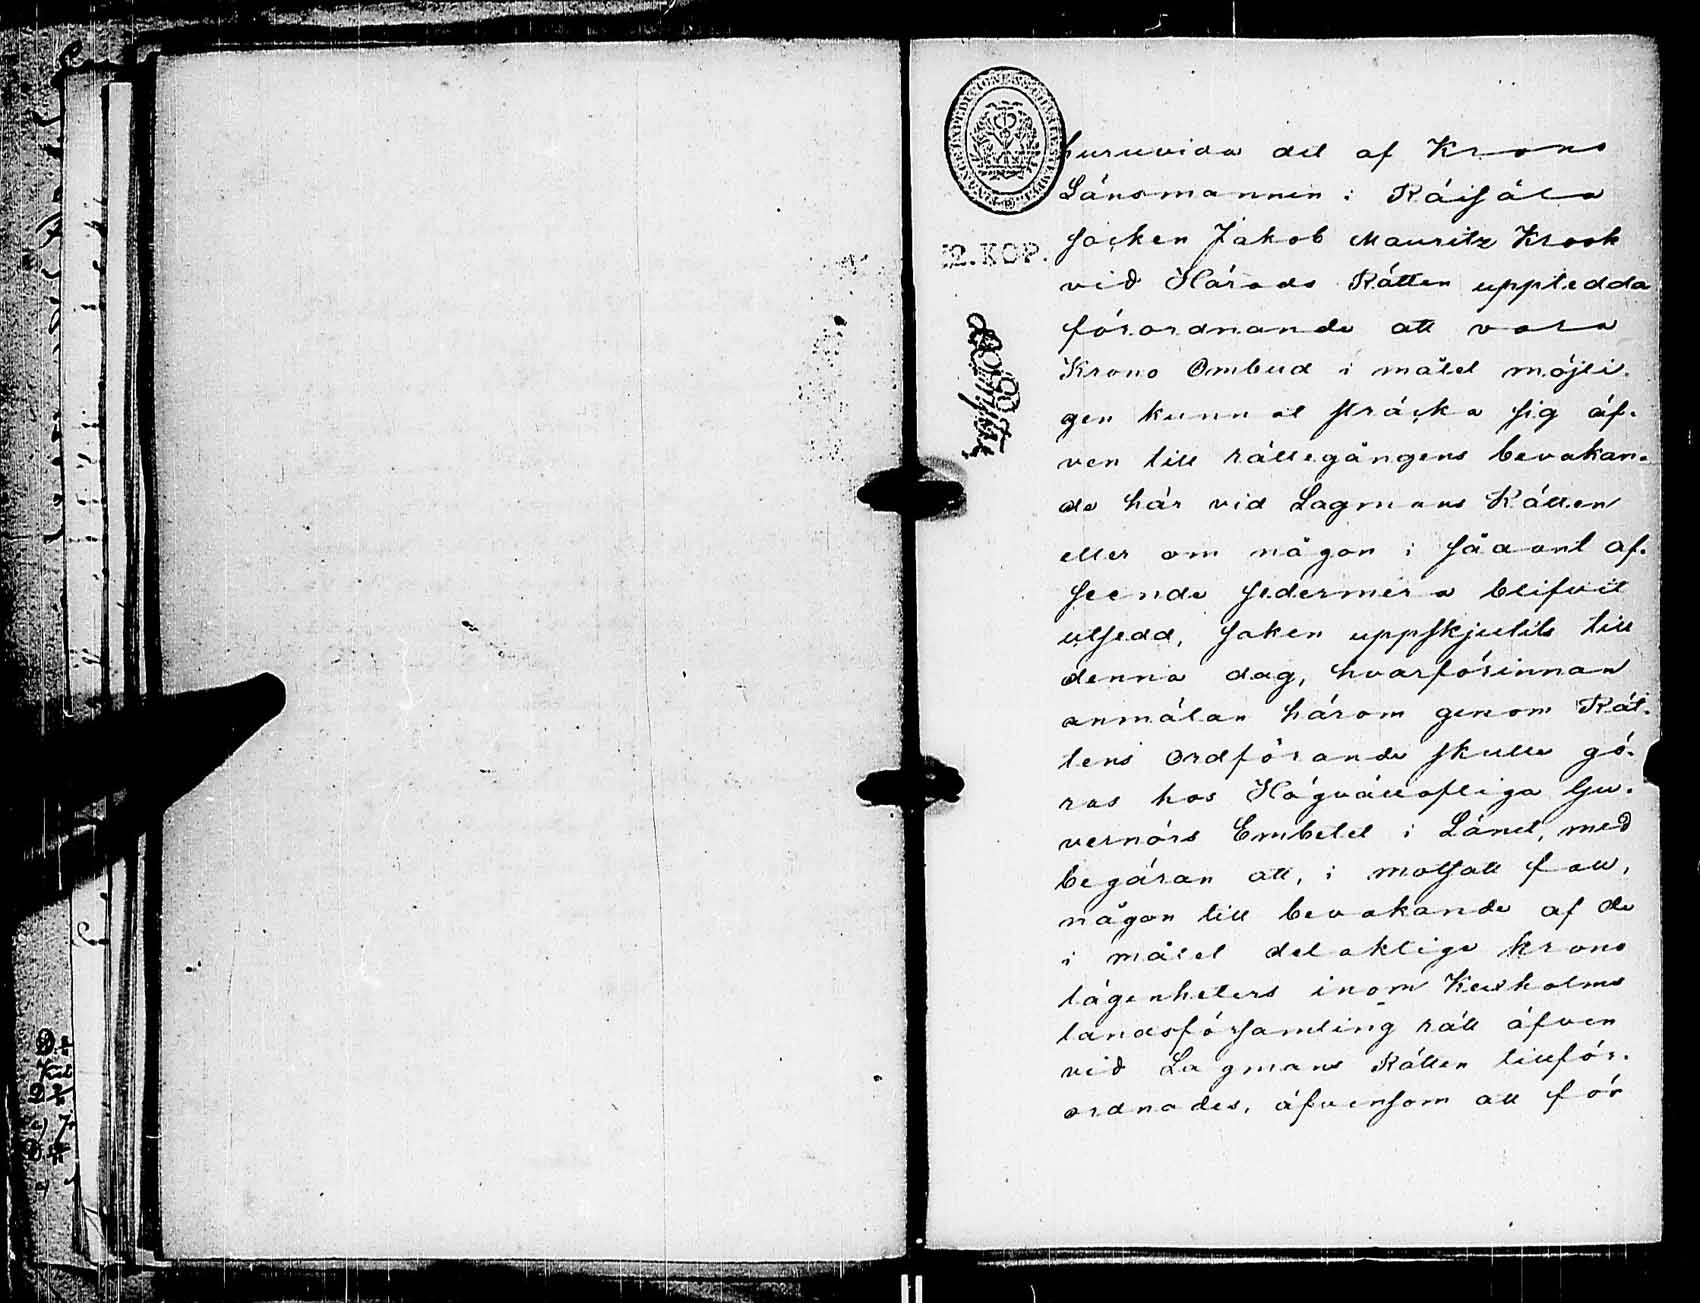 huruvida det af Krono
Länsmannen i Räisälä
socken Jakob Mauritz Krook
vid Härads Rätten uppledda
förordnande att vara
Krono Ombud i målet möjli-
gen kunnat sträcka sig äf-
ven till rättegångens bevakan-
de här vid Lagmans Rätten
eller om någon i sådant af-
seende sedermera blifvit
utsedd, saken uppskjutits till
denna dag, hvarförinnan
anmälan härom genom Rät-
tens Ordförande skulle gö-
ras hos Högvällofliga Gu-
vernörs Embetet i Länet, med
begäran att, i motsatt fall,
någon till bevakande af de
i målet delaktige krono
lägenheters inom Kexholms
landsförsamling rätt äfven
vid Lagmans Rätten tillför-
ordnades, äfvensom att för
2. KOP.